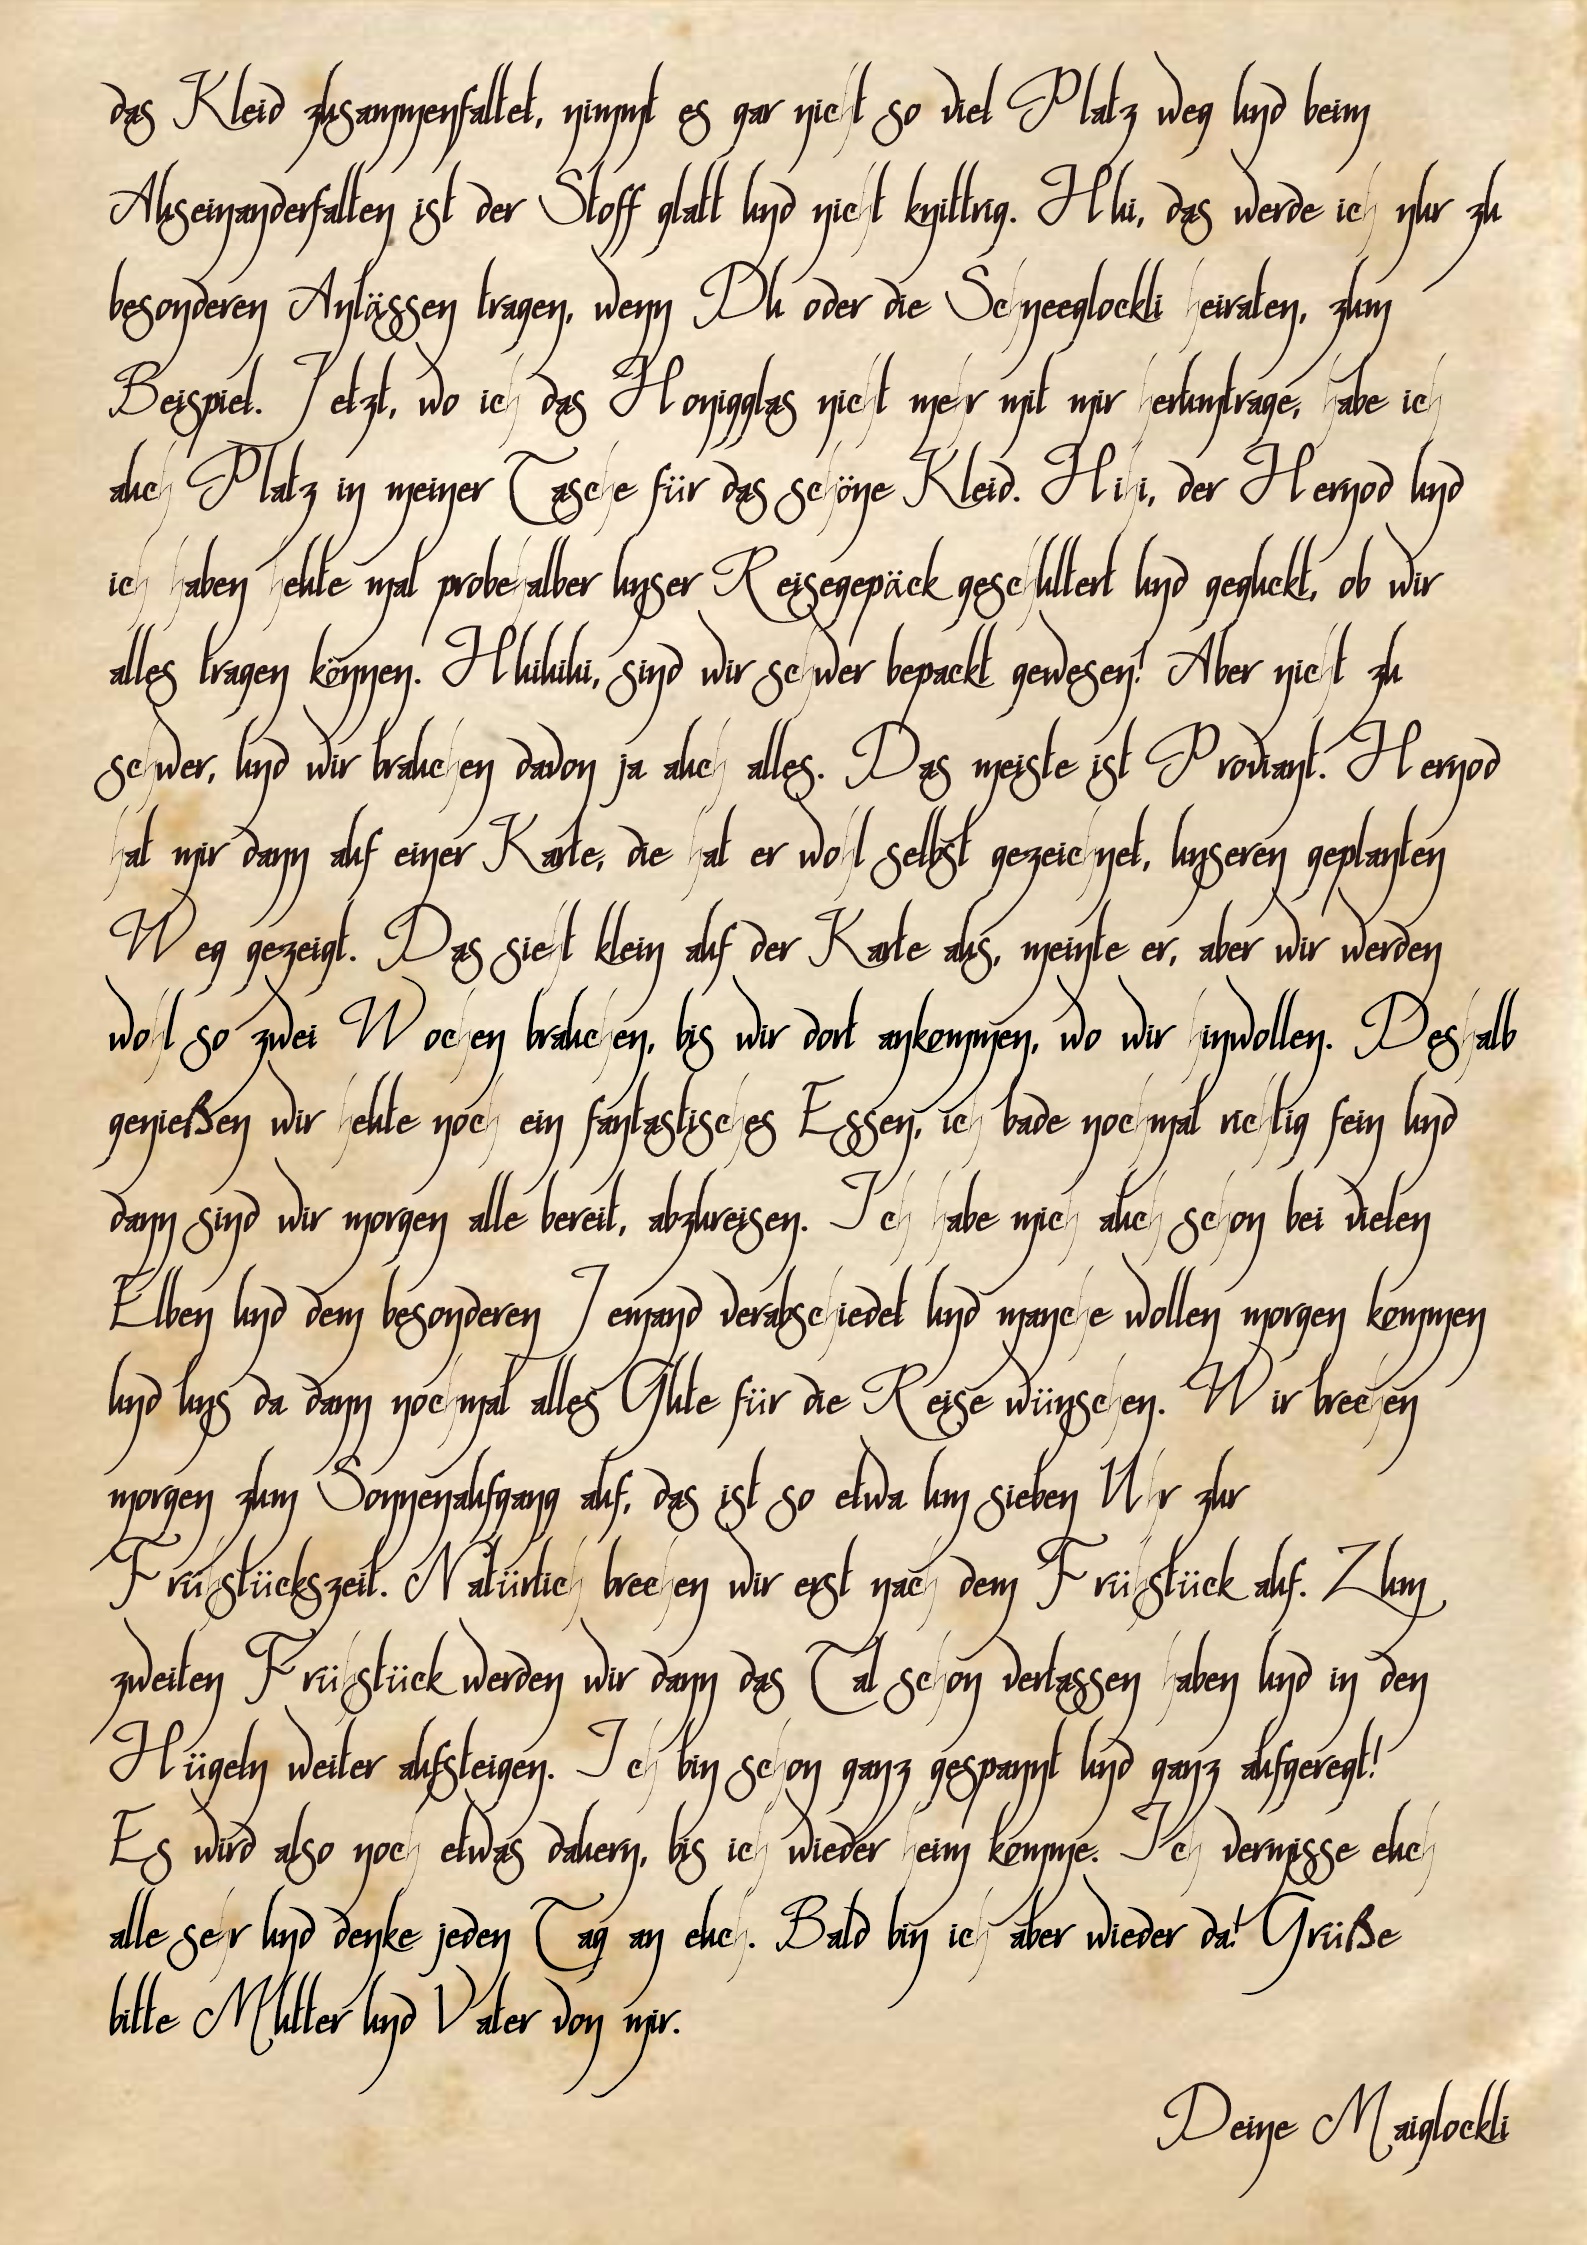 das Kleid zusammenfaltet, nimmt es gar nicht so viel Platz weg und beim
Auseinanderfalten ist der Stoff glatt und nicht knittrig. Hui, das werde ich nur zu
besonderen Anlässen tragen, wenn Du oder die Schneeglockli heiraten, zum
Beispiel. Jetzt, wo ich das Honigglas nicht mehr mit mir herumtrage, habe ich
auch Platz in meiner Tasche für das schöne Kleid. Hihi, der Hernod und
ich haben heute mal probehalber unser Reisegepäck geschultert und geguckt, ob wir
alles tragen können. Huihihi, sind wir schwer bepackt gewesen! Aber nicht zu
schwer, und wir brauchen davon ja auch alles. Das meiste ist Proviant. Hernod
hat mir dann auf einer Karte, die hat er wohl selbst gezeichnet, unseren geplanten
Weg gezeigt. Das sieht klein auf der Karte aus, meinte er, aber wir werden
wohl so zwei Wochen brauchen, bis wir dort ankommen, wo wir hinwollen. Deshalb
genießen wir heute noch ein fantastisches Essen, ich bade nochmal richtig fein und
dann sind wir morgen alle bereit, abzureisen. Ich habe mich auch schon bei vielen
Elben und dem besonderen Jemand verabschiedet und manche wollen morgen kommen
und uns da dann nochmal alles Gute für die Reise wünschen. Wir brechen
morgen zum Sonnenaufgang auf, das ist so etwa um sieben Uhr zur
Frühstückszeit. Natürlich brechen wir erst nach dem Frühstück auf. Zum
zweiten Frühstück werden wir dann das Tal schon verlassen haben und in den
Hügeln weiter aufsteigen. Ich bin schon ganz gespannt und ganz aufgeregt!
Es wird also noch etwas dauern, bis ich wieder heim komme. Ich vermisse euch
alle sehr und denke jeden Tag an euch. Bald bin ich aber wieder da! Grüße
bitte Mutter und Vater von mir.
Deine Maiglockli